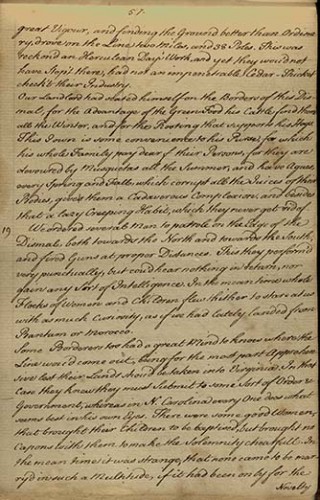 57.
great Vigour, and finding the Ground better than Ordina
ry, drove on the Line two Miles, and 38 Poles. This was
reckon'd an Herculean Day's Work, and yet they wou'd not
have Stop't there, had not an impenetrable Cedar-Thicket
check't their Industry.
Our Landlord had seated himself on the Borders of this Dis-
mal, for the Advantage of the Green Food his Cattle find there
all the Winter, and for the Rooting that supports his Hogs.
This I own is some convenience to his Purse, for which
his whole Family pay dear in their Persons, for they are
devoured by Musquetas all the Summer, and have Agues
every Spring and Fall, which corrupt all the Juices of their
Bodies, give them a Cadaverous Complexion, and besides
that a lazy Creeping Habit, which they never get rid of.
19 We ordered several Men to patrole on the Edge of the
Dismal, both towards the North and towards the South,
and fired Guns at proper Distances. This they perform'd
very punctually, but cou'd hear nothing in return, nor
gain any Sort of Intelligence. In the mean time whole
Flocks of Women and Children flew hither to stare at us
with as much Curiosity, as if we had lately Landed from
Bantam or Morocco.
Some Borderers too had a great Mind to know where the
Line wou'd come out, being for the most part Apprehen
sive lest their Lands Shou'd be taken into Virginia. In that
Case they knew they must Submit to some Sort of Order &
Government; whereas in N. Carolina every One does what
seems best in his own Eyes. There were some good Women,
that brought their Children to be baptiz'd, but brought no
Capons with them to make the Solemnity cheerfull. In
the mean time it was strange, that none came to be mar
ry'd in such a Multitude, if it had been only for the
Novelty